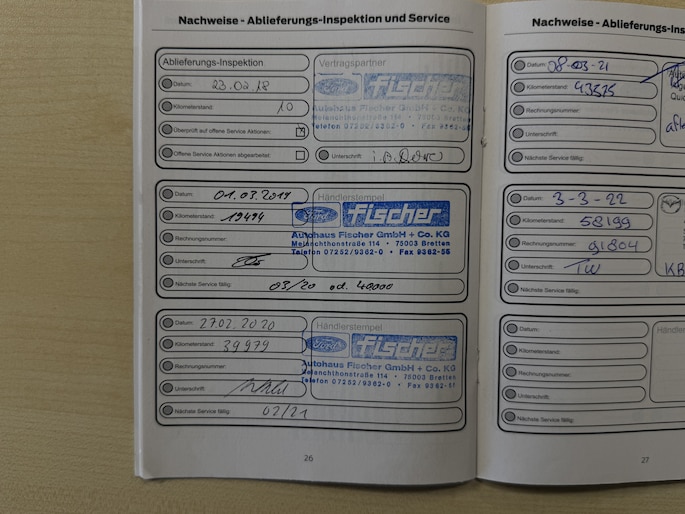 Nachweise - Ablieferungs-Inspektion und Service
Ablieferungs-Inspektion
Vertragspartner
Datum: 23.02.18
Kilometerstand: 10
Überprüft auf offene Service Aktionen:
Offene Service Aktionen abgearbeitet:
Unterschrift:
Ford Fischer
Autohaus Fischer GmbH + Co. KG
Melanchthonstraße 114 • 75003 Bretten
Telefon 07252/9362-0 • Fax 9362-55
Datum: 01.03.2019
Kilometerstand: 19494
Rechnungsnummer:
Unterschrift:
Nächste Service fällig: 03/20 od. 40000
Händlerstempel
Ford Fischer
Autohaus Fischer GmbH + Co. KG
Melanchthonstraße 114 • 75003 Bretten
Telefon 07252/9362-0 • Fax 9362-55
Datum: 27.02.2020
Kilometerstand: 39979
Rechnungsnummer:
Unterschrift:
Nächste Service fällig: 02/21
Händlerstempel
Ford Fischer
Autohaus Fischer GmbH + Co. KG
Melanchthonstraße 114 • 75003 Bretten
Telefon 07252/9362-0 • Fax 9362-
26
Nachweise - Ablieferungs-Ins
Datum: 08-03-21
Kilometerstand: 43575
Rechnungsnummer:
Unterschrift:
Nächste Service fällig:
Datum: 3-3-22
Kilometerstand: 58199
Rechnungsnummer: 91804
Unterschrift: TW
Nächste Service fällig:
KB
Datum:
Kilometerstand:
Rechnungsnummer:
Unterschrift:
Nächste Service fällig:
Händler
27